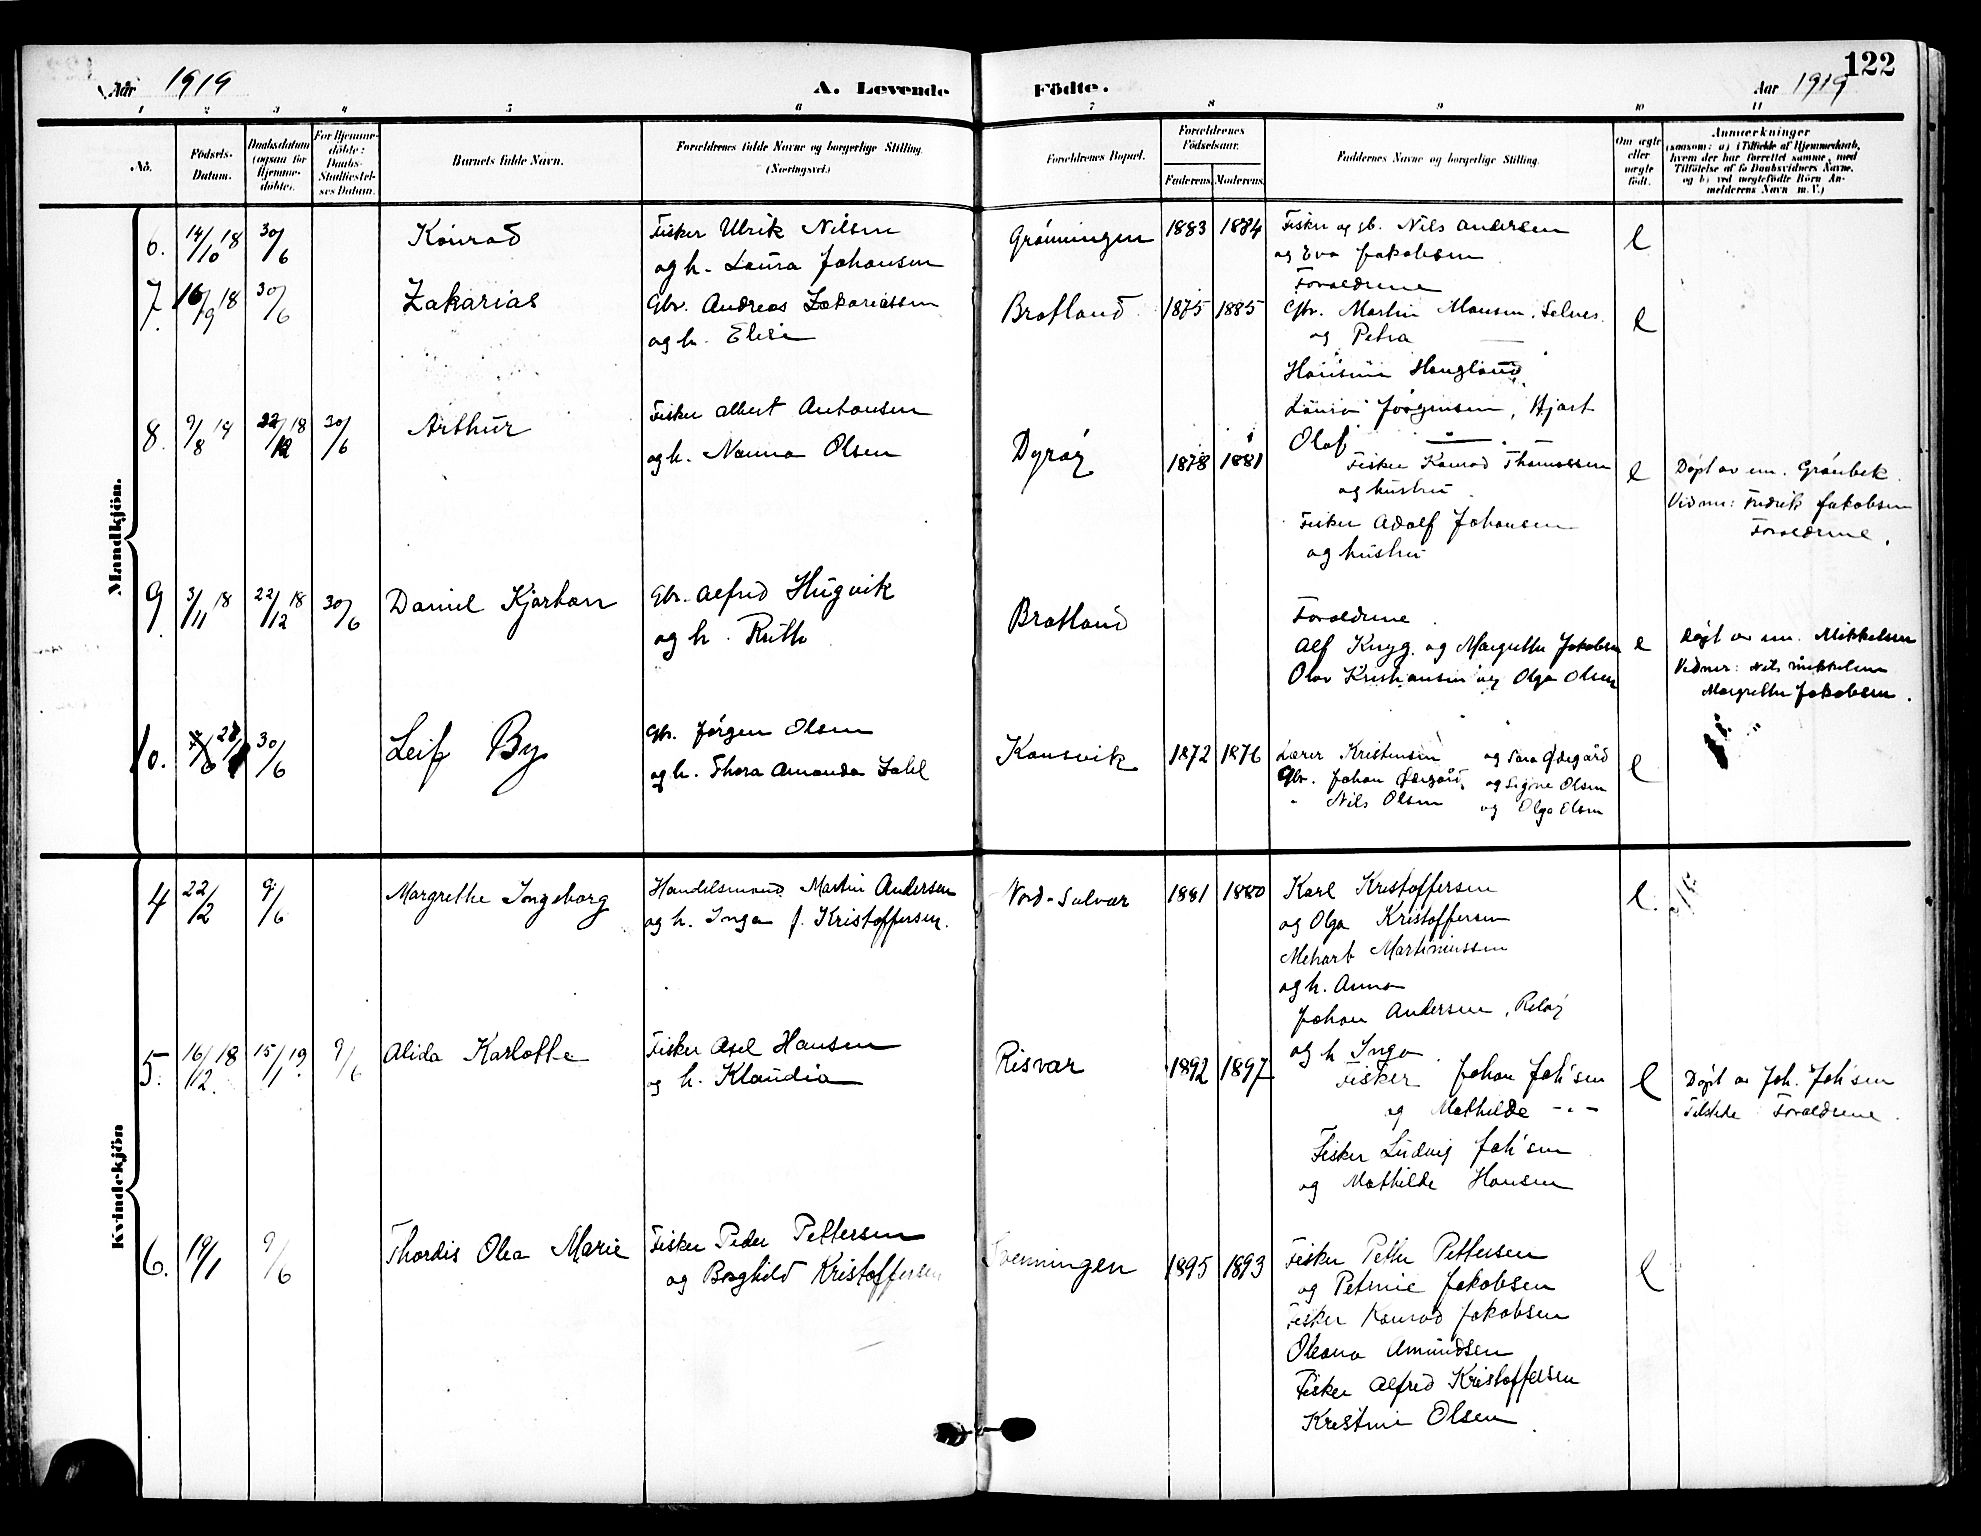 Aar 1919 A. Levende Födte. Aar 1919 122
1 2 3 4 5 6 7 8 9 10 11
Nô. Födsels-Datum. Daabsdatum (ogsaa for Hjemmedöbte). For Hjemmedöbte: Daabs-Stadfæstelses Datum. Barnets fulde Navn. Forældrenes fulde Navne og borgerlige Stilling. (Næringsvei.) Forældrenes Bopæl. Forældrenes Födselsaar. Faderens. Moderens. Faddernes Navne og borgerlige Stilling. Om ægte eller uægte födt. Anmærkninger (saasom: a) i Tilfælde af Hjemmedaab, hvem der har forrettet samme, med Tilföielse af to Daabsvidners Navne, og b) ved uægtefödte Börn Anmelderens Navn m. V.)
Mandkjön.
6. 14/10 18 30/6 Konrad Fisker Ulrik Nilsen Grønningen 1883 1884 Fisker og gb. Nils Andersen e
og h. Laura Johansen og Eva Jakobsen
Forældrene
7. 16/9 18 30/6 Zakarias Gbr. Andreas Zakariassen Bratland 1875 1885 Gbr. Martin Monsen, Selnes. e
og h. Elise og Petra —
Hansine Haugland,
Laura Jørgensen, Hjart
8. 9/8 19 22/12 18 30/6 Arthur Fisker Albert Antonsen Dyrøy 1878 1881 Olaf — " — e
og h. Nanna Olsen Fisker Konrad Thomassen Døpt av em. Grønbek.
og hustru Vidner: Fredrik Jakobsen
Fisker Adolf Johansen Forældrene.
og hustru
9. 3/11 18 22/12 18 30/6 Daniel Kjartan Gbr. Alfred Hugvik Bratland Forældrene. e
og h. Ruth Alf Kryg. og Margrethe Jakobsen Døpt av em. Mikkelsen
Olav Kristiansen og Olga Olsen Vidner: Nils Mikkelsen
Margrethe Jakobsen.
10. 30/6 Leif By Gbr. Jørgen Olsen Konsvik 1872 1876 Lærer Kristensen og Sara Ødegård e
og h. Thora Amanda Zahl Gbr. Johan Ødegård, og Signe Olsen
" Nils Olsen og Olga Olsen
Kvindekjön
4 22/2 9/6 Margrethe Ingeborg Handelsmand Martin Andersen Nord-Solvær 1881 1880 Karl Kristoffersen e.
og h. Inga f. Kristoffersen. og Olga Kristoffersen
Mehart Martiniussen
og h. Anna
Johan Andersen, Reløy
og h Inga.
5. 16/12 18 15/1 19. 9/6 Alida Karlotte Fisker Axel Hansen Risvær 1892 1897 Fisker Johan Joh'sen e Døpt av Joh. Joh'sen
og h. Klaudia og Mathilde -"- Tilstede Forældrene.
Fisker Ludvig Joh'sen
og Mathilde Hansen
6. 19/1 9/6 Thordis Olea Marie Fisker Peder Pettersen Svenningen 1895 1893 Fisker Petter Pettersen e
og Borghild Kristoffersen og Petrine Jakobsen
Fisker Konrad Jakobsen
Oleana Amundsen
Fisker Alfred Kristoffersen
Kristine Olsen.